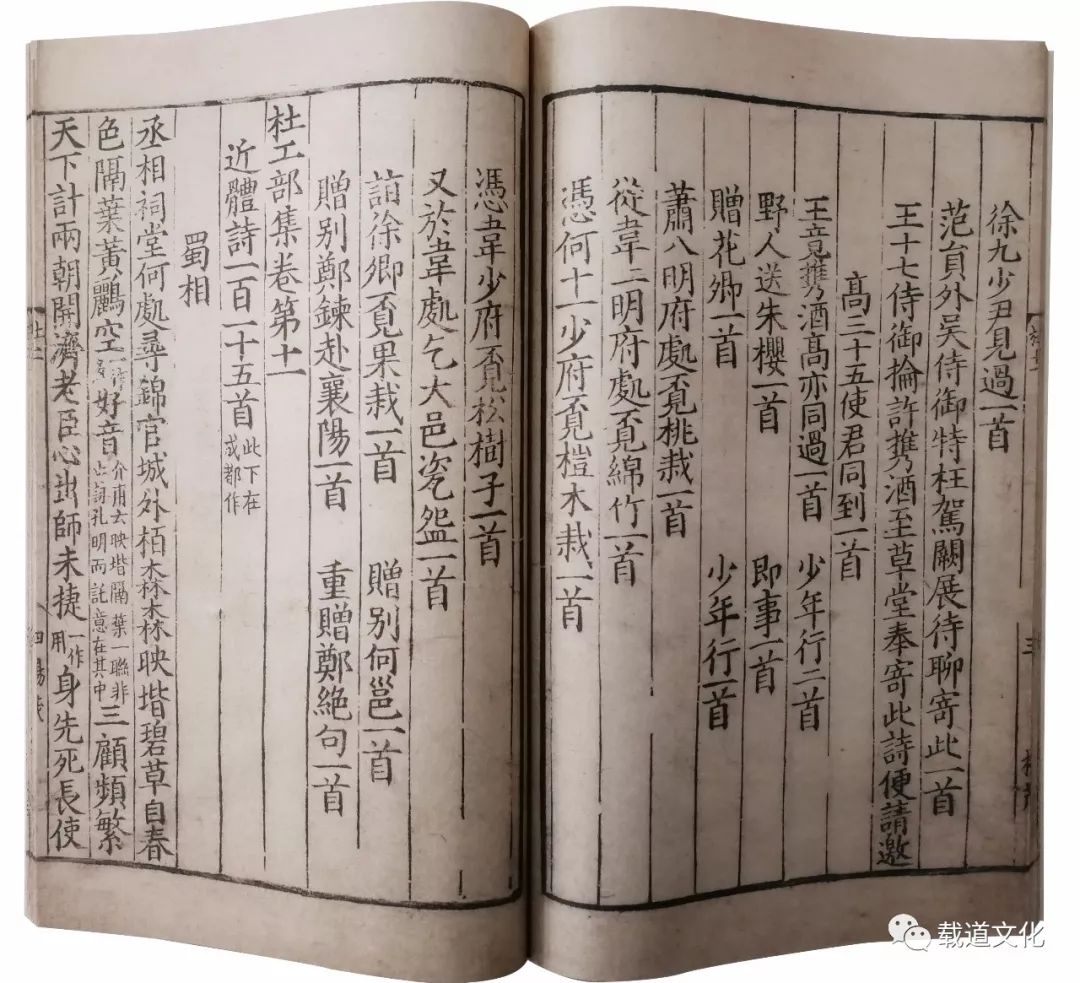 徐九少尹見過一首
范員外吴侍御特枉駕闕展待聊寄此一首
王十七侍御掄許携酒至草堂奉寄此詩便請邀
髙三十五使君同到一首
王竟携酒髙亦同過一首 少年行二首
野人送朱櫻一首 即事一首
贈花卿一首 少年行一首
蕭八明府處覔桃栽一首
從韋二明府處覔綿竹一首
憑何十一少府覔榿木栽一首
憑韋少府覔松樹子一首
又於韋處乞大邑瓷盌一首
詣徐卿覔果栽一首 贈别何邕一首
贈别鄭鍊赴襄陽一首 重贈鄭絶句一首
杜工部集卷第十一
近體詩一百一十五首 此下在成都作
蜀相
丞相祠堂何處尋錦官城外栢森森映堦碧草自春
色隔葉黃鸝空一作多好音介甫云映堦隔葉一聯非止詞孔明而託意在其中三顧頻繁
天下計兩朝開濟老臣心出師未捷一作用身先死長使
三
四
载道文化